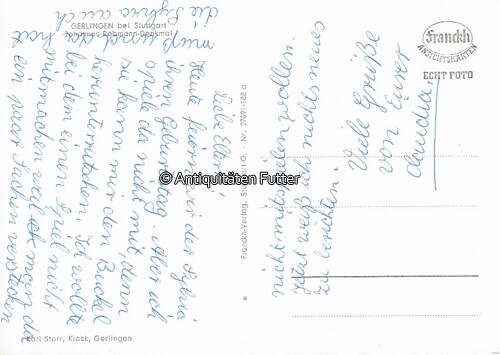 GERLINGEN bei Stuttgart
Johannes-Rebmann-Denkmal
Franckh
ANSICHTSKARTEN
ECHT FOTO
Liebe Eltern!
Heute feiern wir der
ihren Geburtstag. Aber ich
spiele da nicht mit, denn
die kann mir den Buckel
herunterrutschen. Ich wollte
bei dem einen Spiel nicht
mitmachen weil man da
ein paar Sachen verstecken
muß und da
die auch
hat
nicht mitspielen wollen.
Jetzt weiß ich nichts neues
zu berichten.
Viele Grüße
von Eurer
Claudia.
Franckh-Verlag, Stuttgart-O. · Nr. 27091-188 a
Karl Storr, Kiosk, Gerlingen
© Antiquitäten Futter